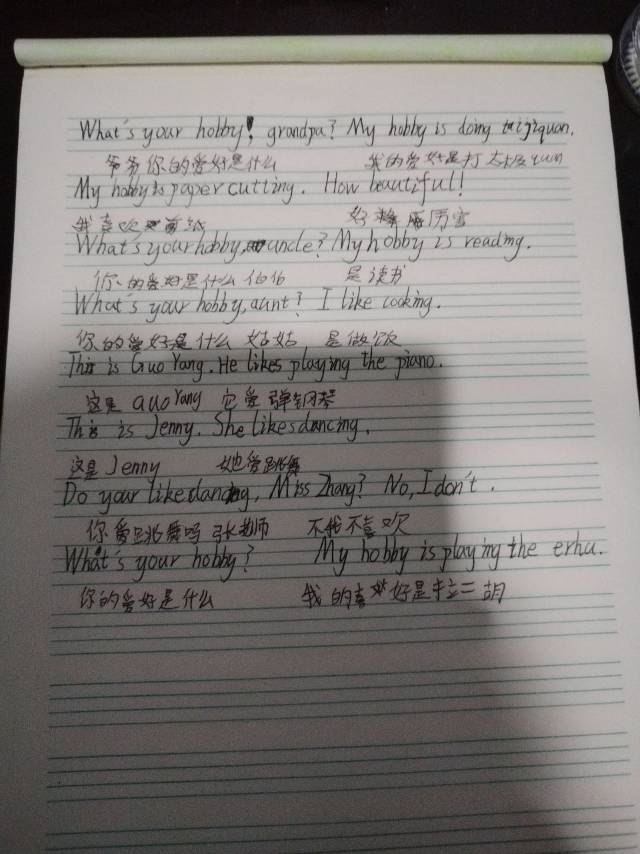 What's your hobby, grandpa? My hobby is doing taijiquan.
爷爷你的爱好是什么 我的爱好是打太极qun
My hobby is paper cutting. How beautiful!
我喜欢剪纸 好 厉害
What's your hobby, uncle? My hobby is reading.
你的爱好是什么伯伯 是读书
What's your hobby, aunt? I like cooking.
你的爱好是什么 姑姑 是做饭
This is Guo Yang. He likes playing the piano.
这是 Guo Yang 它爱弹钢琴
This is Jenny. She likes dancing.
这是 Jenny 她爱跳舞
Do your like dancing, Miss Zhang? No, I don't.
你爱跳舞吗 张老师 不我不喜欢
What's your hobby? My hobby is playing the erhu.
你的爱好是什么 我的喜 好是拉二胡